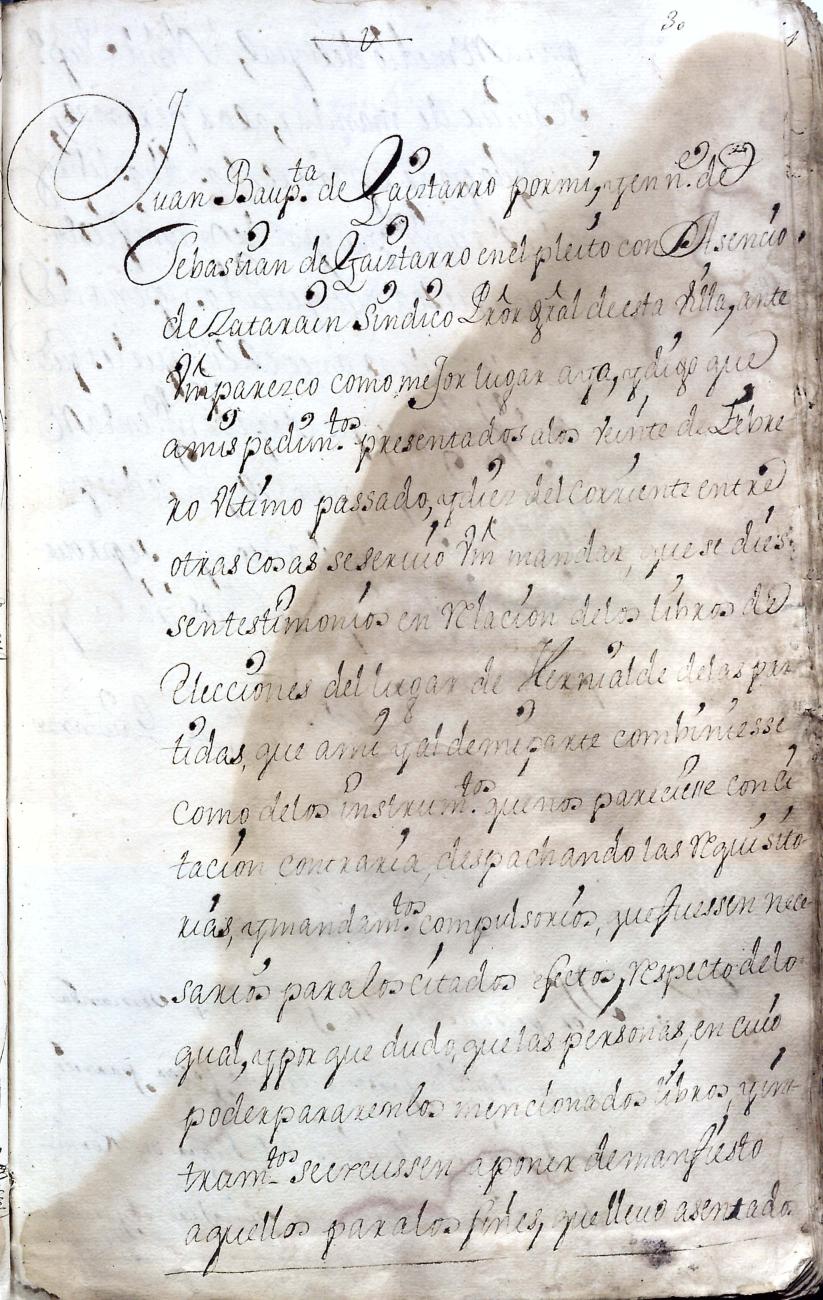 30
Juan Baup.ta de Gaiztarro por mi, y en n.e de
Sebastian de Gaiztarro en el pleito con Asencio
de Zatarain Sindico Pror gral de esta villa, ante
Vm parezco como mejor lugar aya, y digo que
a mis pedim.tos presentados a los veinte de Febre
ro ultimo passado, y diez del corriente entre
otras cosas se seruio Vm mandar, que se dies
sen testimonios en relacion de los libros de
Elecciones del lugar de Hernialde de las par
tidas, que a mi y al de mi parte combiniesse
como de los instrum.tos que nos pareciere con ci
tacion contraria, despachando las requisito
rias, y mandam.tos compulsorios, que fuessen nece
sarios para los citados efectos, respecto de lo
qual, y por que dudo, que las personas, en cuio
poder pararen los mencionados libros, y ins
tram.tos se ercussen a poner de manifiesto
aquellos para los fines, que lleuo asentado